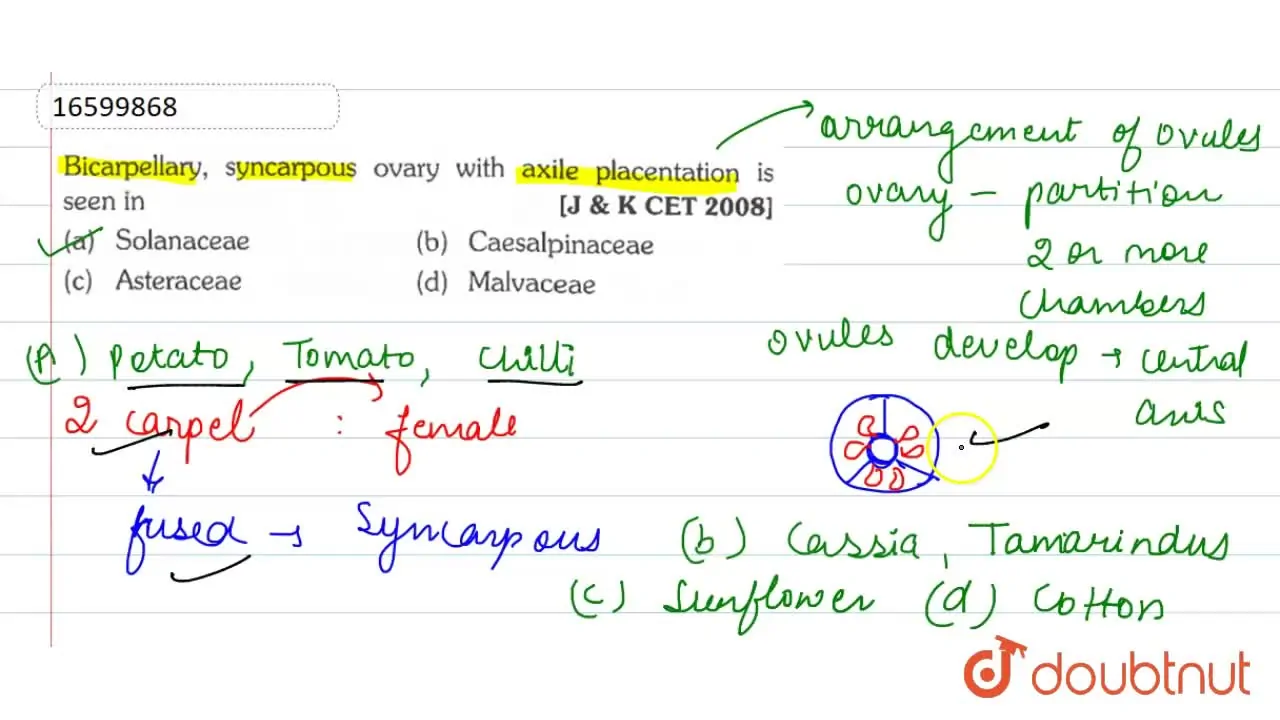 16599868
Bicarpellary, syncarpous ovary with axile placentation is
seen in [J & K CET 2008]
(a) Solanaceae (b) Caesalpinaceae
(c) Asteraceae (d) Malvaceae
arrangement of ovules
ovary – partition
2 or more
chambers
ovules develop → central
axis
(A) Potato, Tomato, chilli
2 carpel : female
fused → Syncarpous
(b) Cassia, Tamarindus
(c) Sunflower (d) Cotton
doubtnut